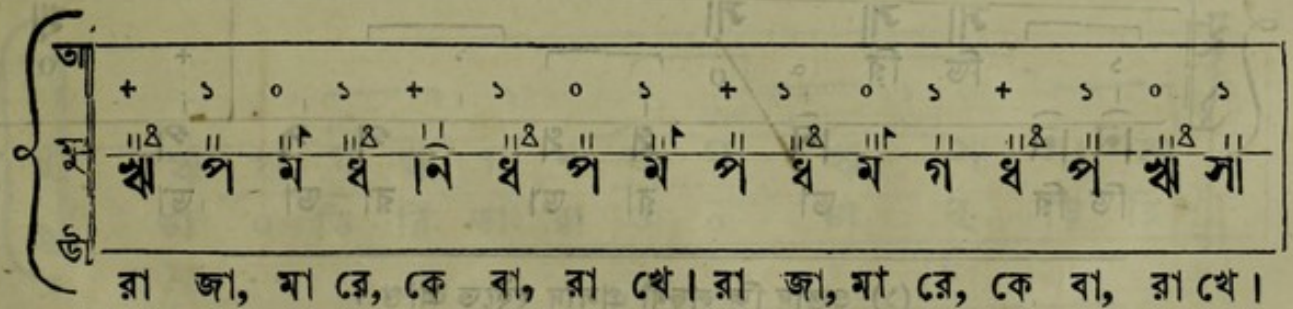 আ
+ ১ ০ ১ + ১ ০ ১ + ১ ০ ১ + ১ ০ ১
মু
ঋ প ম ধ নি ধ প ম প ধ ম গ ধ প ঋ সা
উ
রা জা, মা রে, কে বা, রা খে। রা জা, মা রে, কে বা, রা খে।